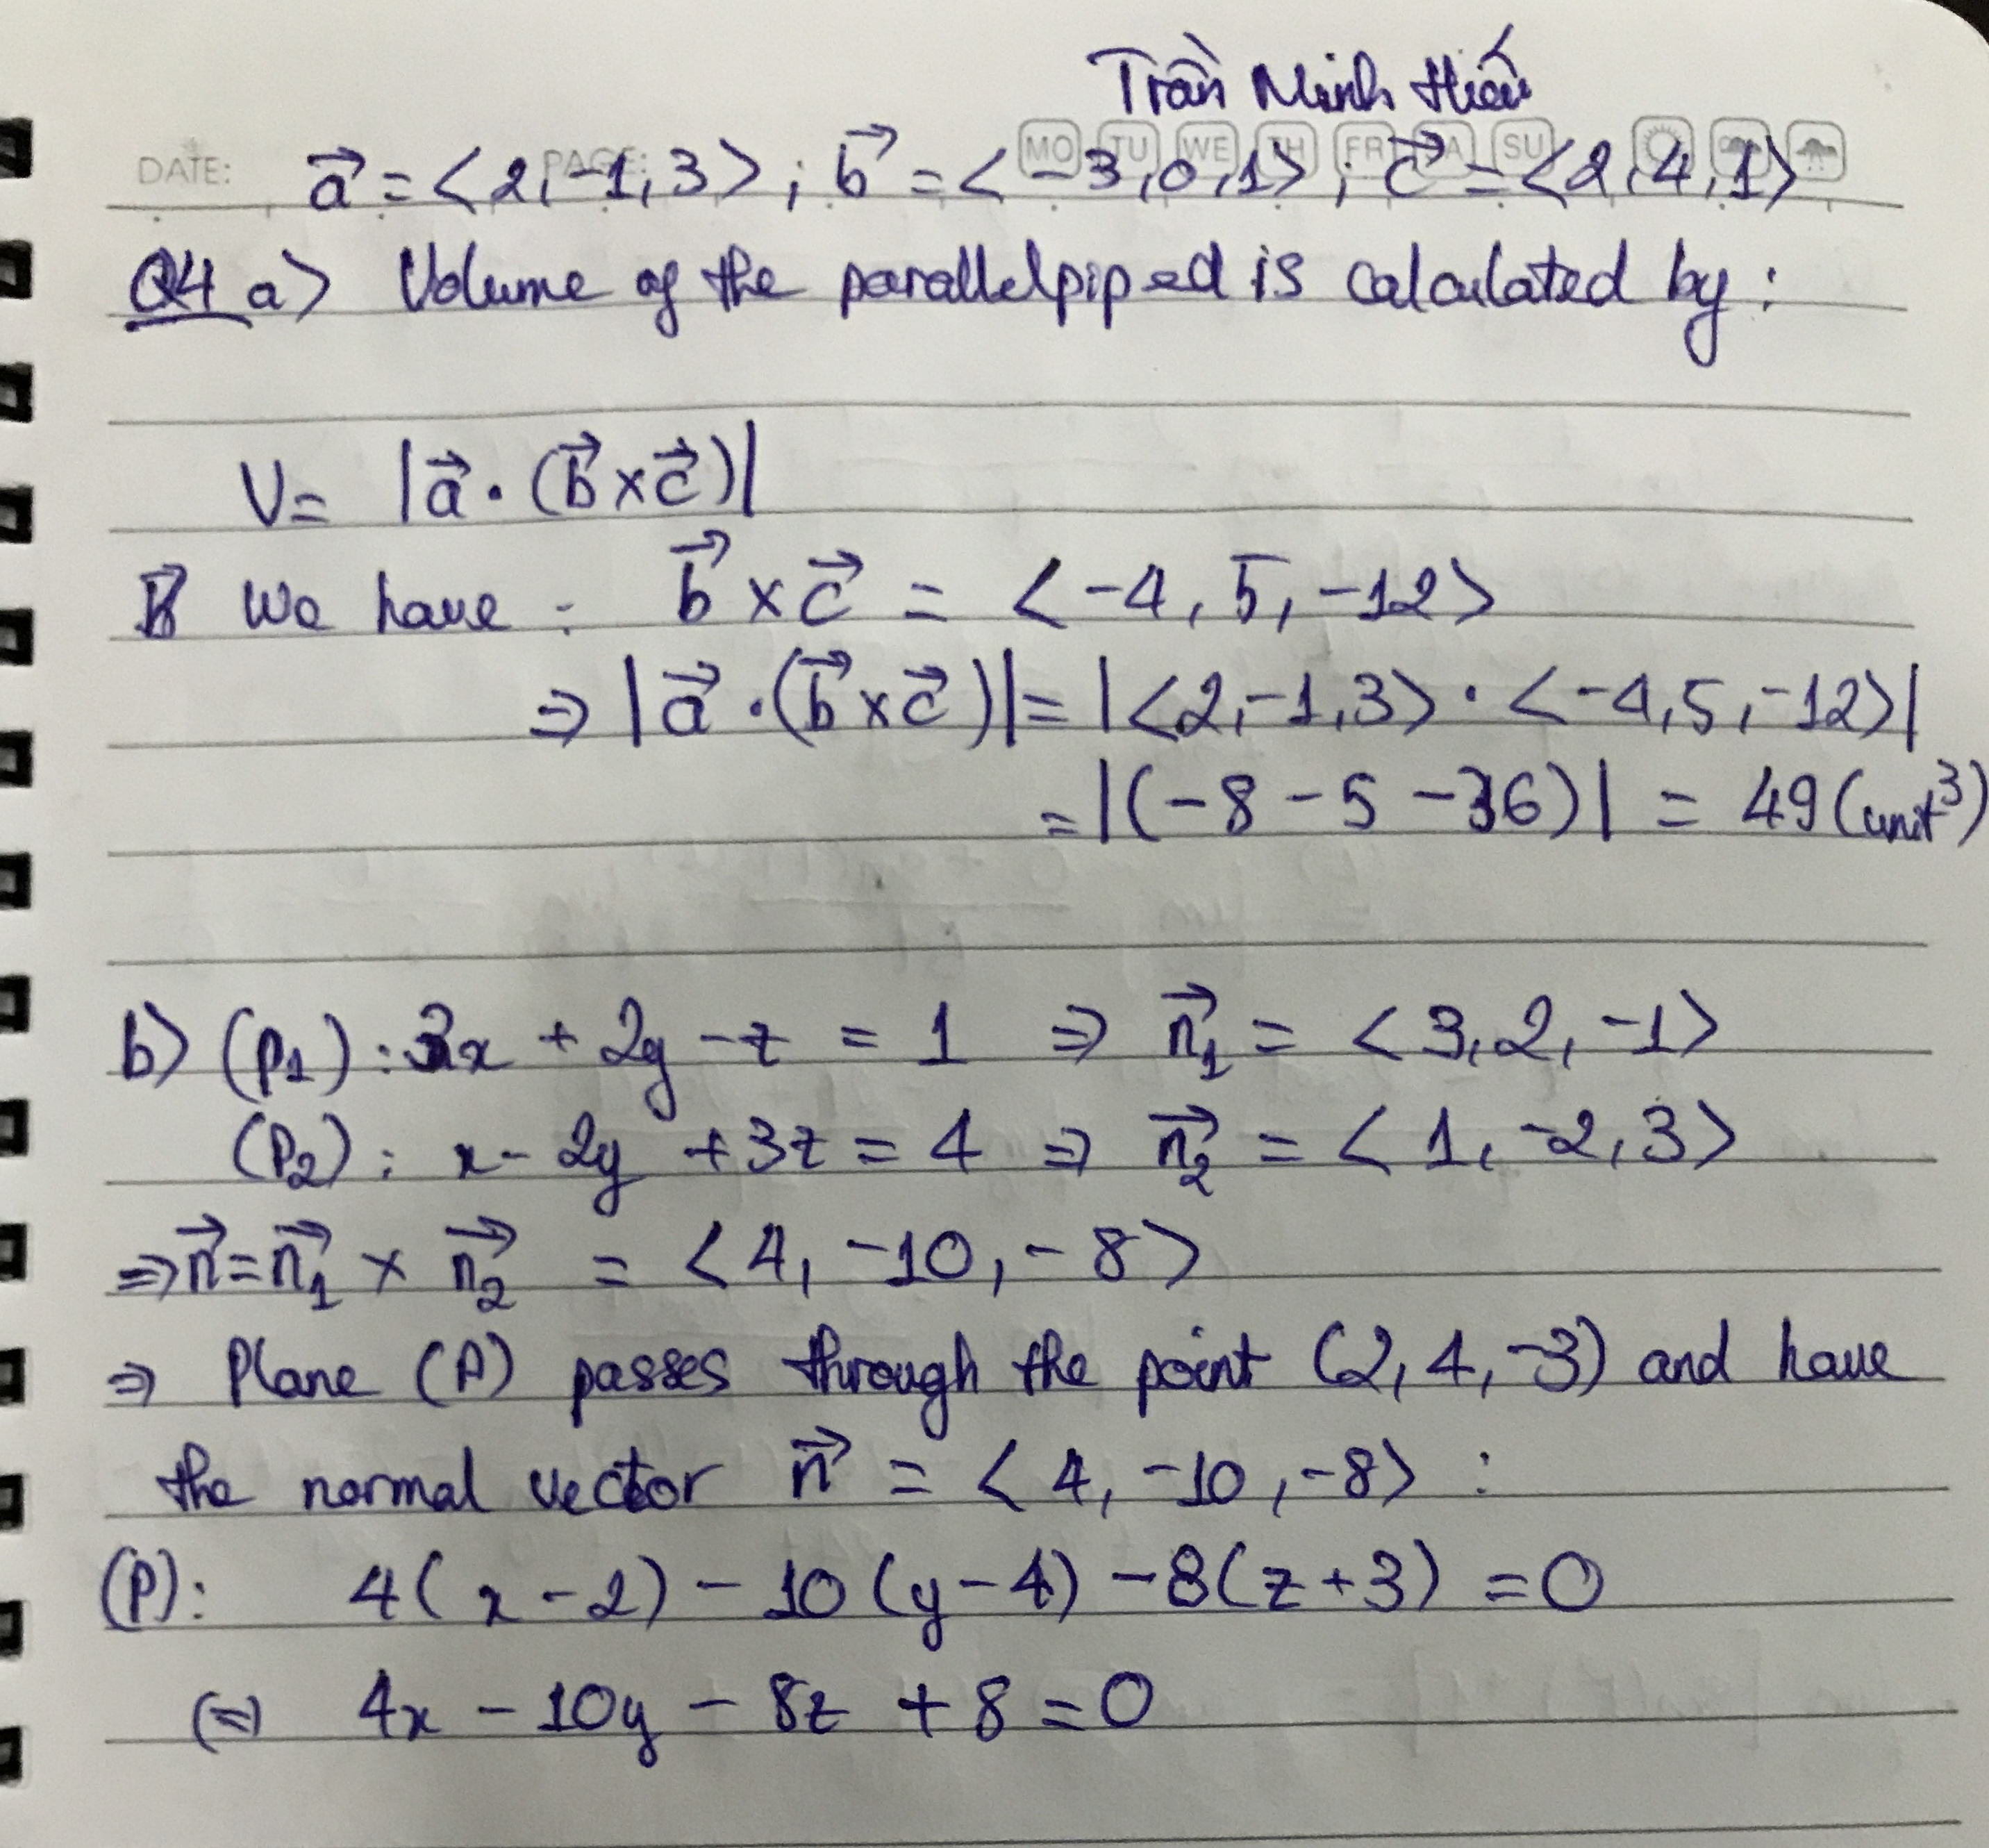 Trần Minh Hiếu
DATE: PAGE: MO TU WE TH FR SA SU
a⃗ = <2, -1, 3> ; b⃗ = < -3, 0, 1> ; c⃗ = <2, 4, 1>
Q4 a> Volume of the parallelpiped is calculated by :
V = |a⃗ · (b⃗ × c⃗)|
We have : b⃗ × c⃗ = < -4, 5, -12>
⇒ |a⃗ · (b⃗ × c⃗)| = |<2, -1, 3> · < -4, 5, -12>|
= |(-8 - 5 - 36)| = 49 (unit³)
b> (P₁) : 3x + 2y - z = 1 ⇒ n₁⃗ = < 3, 2, -1>
(P₂) : x - 2y + 3z = 4 ⇒ n₂⃗ = < 1, -2, 3>
⇒ n⃗ = n₁⃗ × n₂⃗ = < 4, -10, -8>
⇒ Plane (P) passes through the point (2, 4, -3) and have
the normal vector n⃗ = < 4, -10, -8> :
(P) : 4(x - 2) - 10(y - 4) - 8(z + 3) = 0
(=) 4x - 10y - 8z + 8 = 0